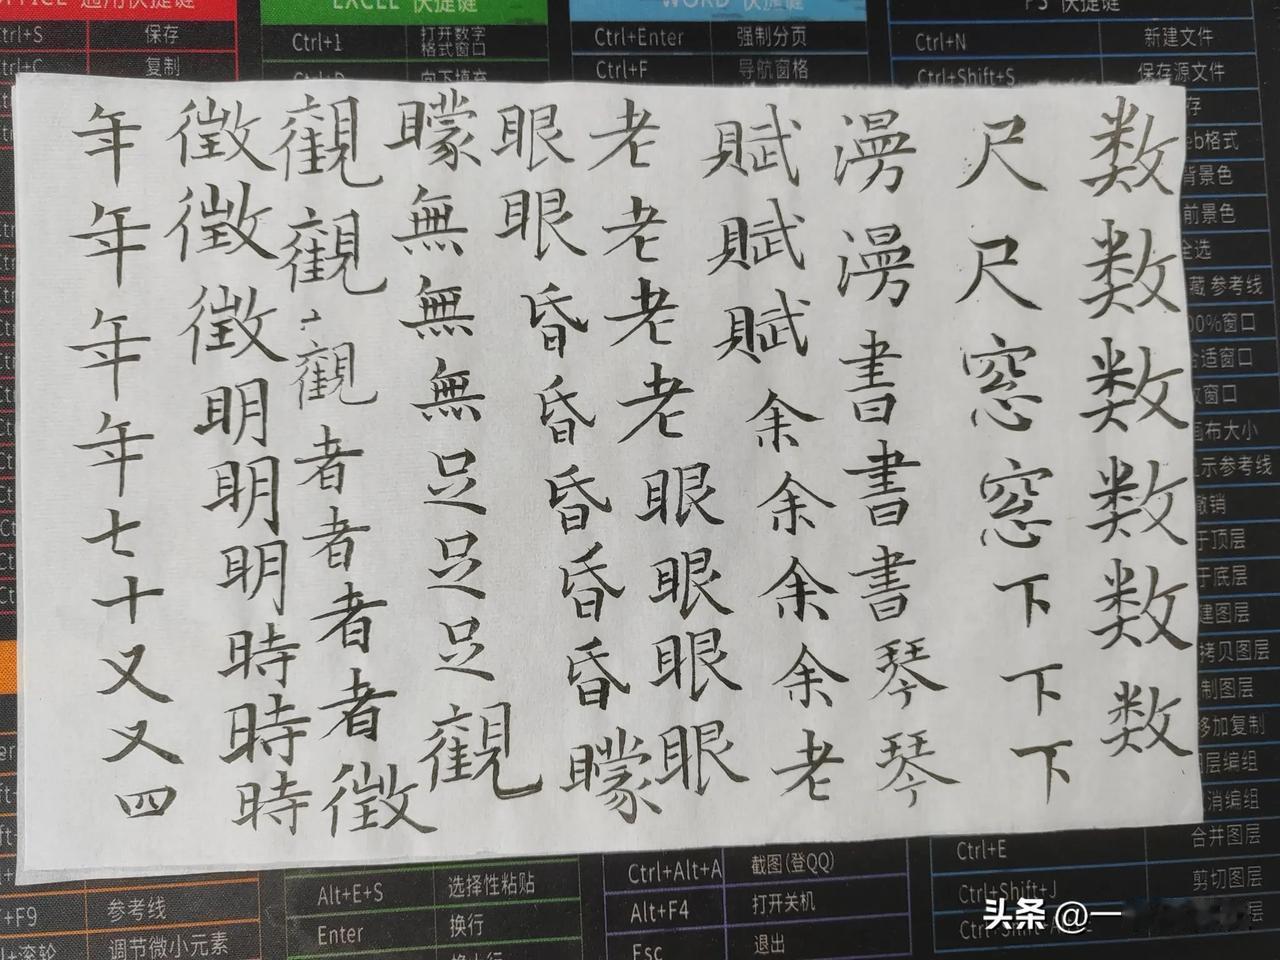 数数数数数数
尺尺窓窓下下下
漫漫書書書琴琴
賦賦賦余余余余老
老老老老眼眼眼眼
眼眼昏昏昏昏昏矇
矇無無無足足足觀
觀觀觀者者者者徵
徵徵徵明明明時時時
年年年年七十又又四
EXCEL 快捷键
WORD 快捷键
PS 快捷键
Ctrl+S 保存
复制
Ctrl+1 打开数字格式窗口
向下填充
Ctrl+Enter 强制分页
Ctrl+F 导航窗格
Ctrl+N 新建文件
Ctrl+Shift+S 保存源文件
背景色
前景色
全选
参考线
00%窗口
画布大小
示参考线
撤销
于顶层
于底层
建图层
拷贝图层
制图层
移加复制
层编组
消编组
合并图层
Ctrl+E
剪切图层
Ctrl+Shift+J
Alt+E+S 选择性粘贴
Enter 换行
Ctrl+Alt+A 截图(登QQ)
Alt+F4 打开关机
Esc 退出
+F9 参考线
+滚轮 调节微小元素
头条 @一